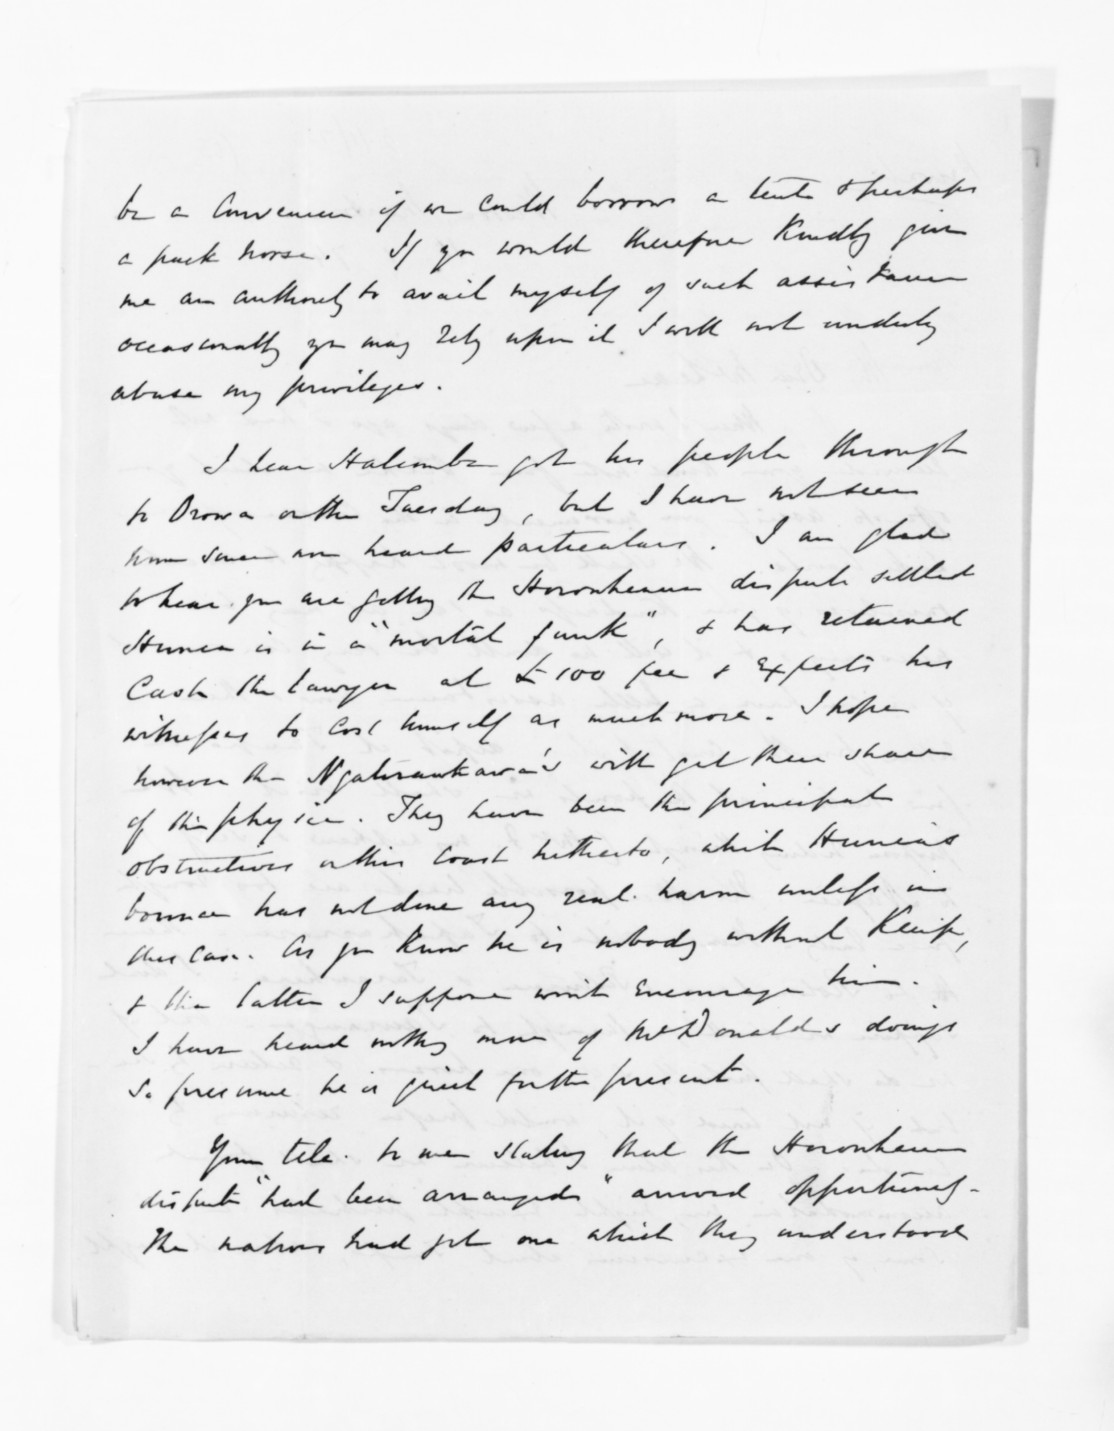 be a convenience if we could borrow a tent & perhaps
a pack horse. If you would therefore Kindly give
me an authority to avail myself of such assistance
occasionally you may rely upon it I will not unduly
abuse my privileges.
I hear Halcombe got his people through
to Oroua on the Tuesday, but I have not seen
him since nor heard particulars. I am glad
to hear you are getting the Horowhenua dispute settled
Hunia is in a "mortal funk", & has retained
Cash the Lawyer at £100 fee & Expects his
witnesses to cost himself as much more. I hope
however the Ngatiraukawa's will get their share
of the physic. They have been the principal
obstructives on this Coast hitherto, while Hunia's
bounce has not done any real harm unless in
this case. As you Know he is nobody without Keepa,
& the latter I suppose won't Encourage him.
I have heard nothing more of McDonald's doings
so presume he is quiet for the present.
Your tele. to me stating that the Horowhenua
dispute "had been arranged" arrived opportunely.
The natives had got one which they understood